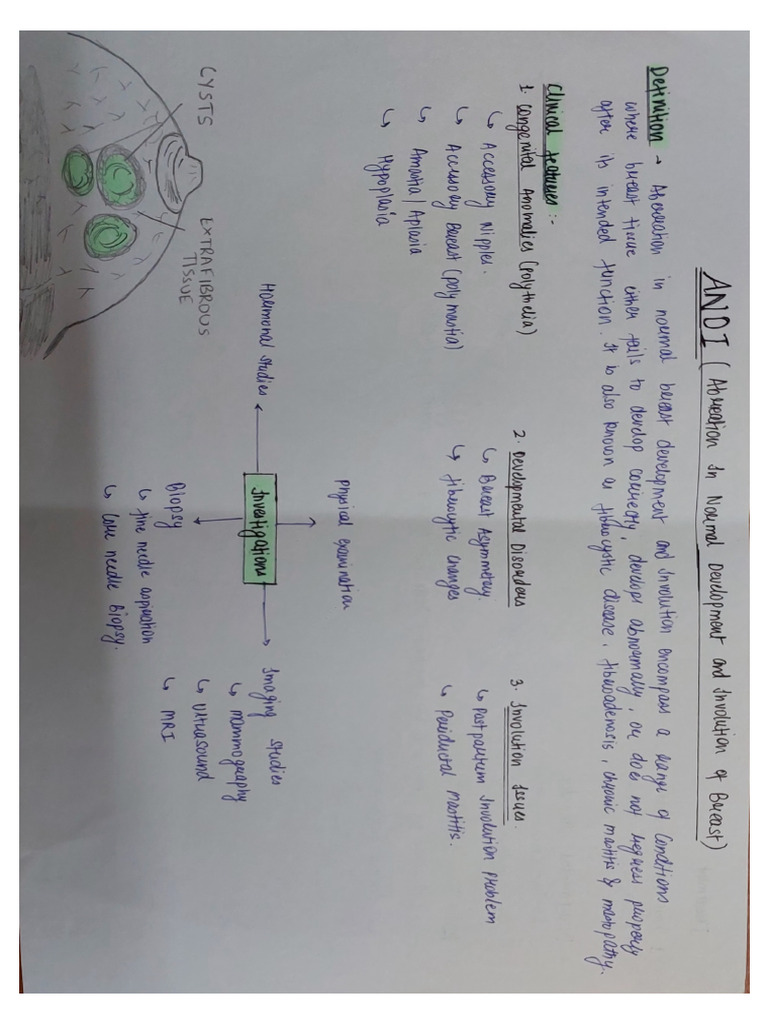 ANDI (Abreation In Normal Development and Involution of Breast)
Definition → Abreration in normal breast development and Involution encompass a range of conditions
where breast tissue either fails to develop correctly, develops abnormally, or does not regress properly
after its intended function. It is also known as fibrocystic disease, fibroadenosis, chronic mastitis & mastopathy.
Clinical features :-
1. Congenital Anomalies (polythelia)
↳ Accessory Nipples.
↳ Accessory Breast (polymastia)
↳ Amastia / Aplasia
↳ Hypoplasia
2. Developmental Disorders
↳ Breast Asymmetry.
↳ fibrocytic changes
3. Involution Issues.
↳ Postpartum Involution Problem
↳ Periductal Mastitis.
Physical examination
Investigations
Hormonal studies
Biopsy
↳ fine needle aspiration
↳ Core needle Biopsy.
Imaging studies
↳ mammography
↳ Ultrasound
↳ MRI
CYSTS
EXTRAFIBROUS
TISSUE